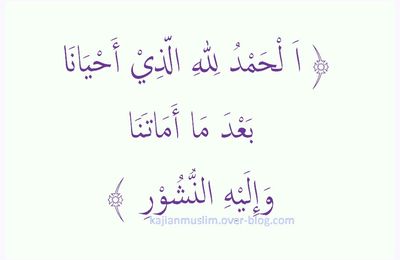 ﴿ اَ لْحَمْدُ لِلهِ الّذِيْ أَحْيَانَا
بَعْدَ مَا أَمَاتَنَا
وَإِلَيْهِ النُّشُوْرِ ﴾
kajianmuslim.over-blog.com